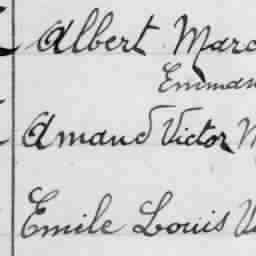 Albert Marc
Emman
Amand Victor M
Emile Louis